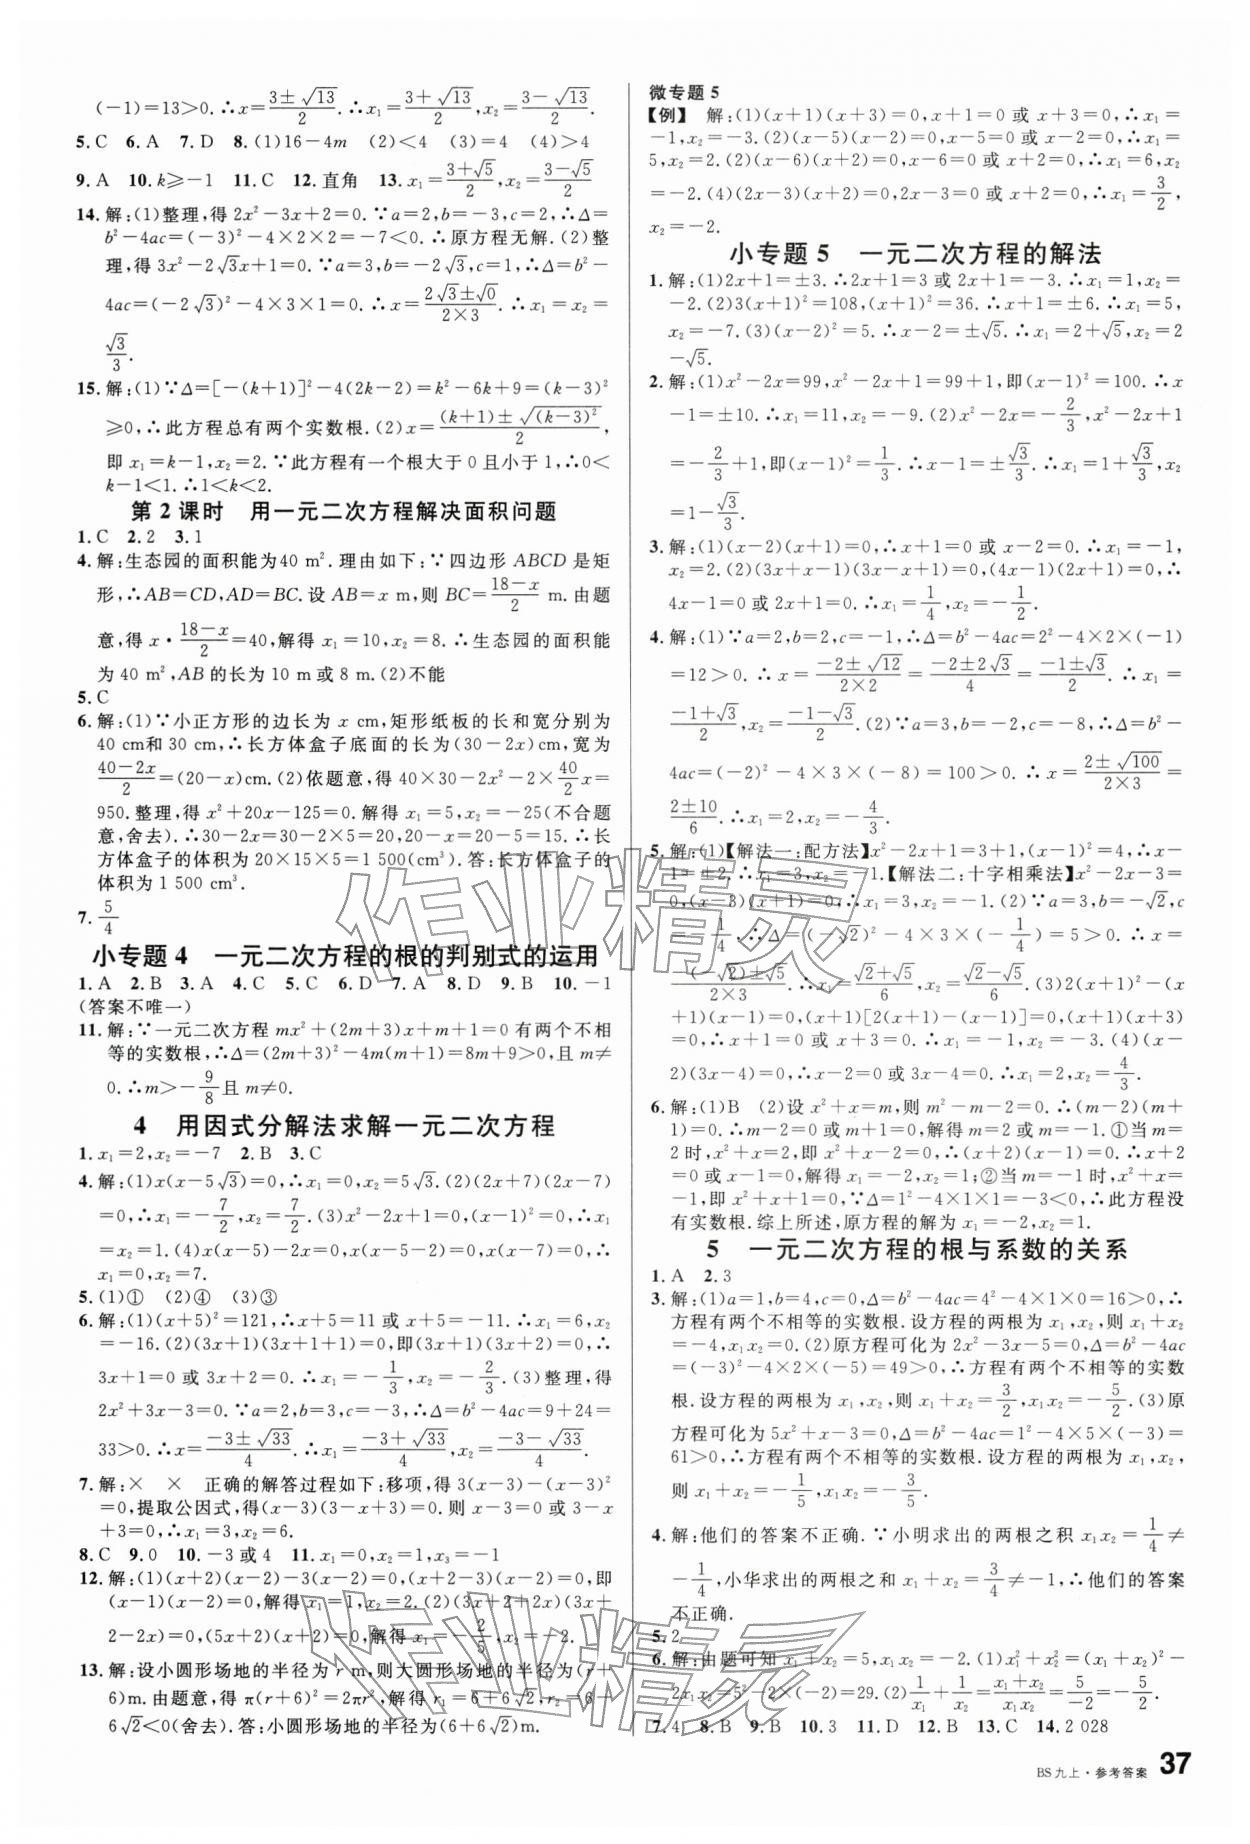 (-1)=13>0.∴x=(3±√13)/2.∴x₁=(3+√13)/2,x₂=(3-√13)/2.
5.C 6.A 7.D 8.(1)16-4m (2)<4 (3)=4 (4)>4
9.A 10.k≥-1 11.C 12.直角 13.x₁=(3+√5)/2,x₂=(3-√5)/2
14.解:(1)整理,得2x²-3x+2=0.∵a=2,b=-3,c=2,∴Δ=
b²-4ac=(-3)²-4×2×2=-7<0.∴原方程无解.(2)整
理,得3x²-2√3x+1=0.∵a=3,b=-2√3,c=1,∴Δ=b²-
4ac=(-2√3)²-4×3×1=0.∴x=(2√3±√0)/(2×3).∴x₁=x₂=
√3/3.
15.解:(1)∵Δ=[-(k+1)]²-4(2k-2)=k²-6k+9=(k-3)²
≥0,∴此方程总有两个实数根.(2)x=((k+1)±√(k-3)²)/2,
即x₁=k-1,x₂=2.∵此方程有一个根大于0且小于1,∴0<
k-1<1.∴1<k<2.
第2课时 用一元二次方程解决面积问题
1.C 2.2 3.1
4.解:生态园的面积能为40 m².理由如下:∵四边形ABCD是矩
形,∴AB=CD,AD=BC.设AB=x m,则BC=(18-x)/2 m.由题
意,得x·(18-x)/2=40,解得x₁=10,x₂=8.∴生态园的面积能
为40 m²,AB的长为10 m或8 m.(2)不能
5.C
6.解:(1)∵小正方形的边长为x cm,矩形纸板的长和宽分别为
40 cm和30 cm,∴长方体盒子底面的长为(30-2x)cm,宽为
(40-2x)/2=(20-x)cm.(2)依题意,得40×30-2x²-2×40/2x=
950.整理,得x²+20x-125=0.解得x₁=5,x₂=-25(不合题
意,舍去).∴30-2x=30-2×5=20,20-x=20-5=15.∴长
方体盒子的体积为20×15×5=1 500(cm³).答:长方体盒子的
体积为1 500 cm³.
7.5/4
小专题4 一元二次方程的根的判别式的运用
1.A 2.B 3.A 4.C 5.C 6.D 7.A 8.D 9.B 10.-1
(答案不唯一)
11.解:∵一元二次方程mx²+(2m+3)x+m+1=0有两个不相
等的实数根,∴Δ=(2m+3)²-4m(m+1)=8m+9>0,且m≠
0.∴m>-9/8且m≠0.
4 用因式分解法求解一元二次方程
1.x₁=2,x₂=-7 2.B 3.C
4.解:(1)x(x-5√3)=0,∴x₁=0,x₂=5√3.(2)(2x+7)(2x-7)
=0,∴x₁=-7/2,x₂=7/2.(3)x²-2x+1=0,(x-1)²=0,∴x₁
=x₂=1.(4)x(x-5)-2x=0,x(x-5-2)=0,x(x-7)=0,∴
x₁=0,x₂=7.
5.(1)① (2)④ (3)③
6.解:(1)(x+5)²=121,∴x+5=11或x+5=-11.∴x₁=6,x₂
=-16.(2)(3x+1)(3x+1+1)=0,即(3x+1)(3x+2)=0,∴
3x+1=0或3x+2=0.∴x₁=-1/3,x₂=-2/3.(3)整理,得
2x²+3x-3=0.∵a=2,b=3,c=-3,∴Δ=b²-4ac=9+24=
33>0.∴x=(-3±√33)/4.∴x₁=(-3+√33)/4,x₂=(-3-√33)/4.
7.解:× × 正确的解答过程如下:移项,得3(x-3)-(x-3)²
=0,提取公因式,得(x-3)(3-x+3)=0.则x-3=0或3-x
+3=0,∴x₁=3,x₂=6.
8.C 9.0 10.-3或4 11.x₁=0,x₂=1,x₃=-1
12.解:(1)(x+2)(x-2)-3(x-2)=0,(x+2-3)(x-2)=0,即
(x-1)(x-2)=0,解得x₁=1,x₂=2.(2)(3x+2+2x)(3x+
2-2x)=0,(5x+2)(x+2)=0,解得x₁=-2/5,x₂=-2.
13.解:设小圆形场地的半径为r m,则大圆形场地的半径为(r+
6)m.由题意,得π(r+6)²=2πr²,解得r₁=6+6√2,r₂=6-
6√2<0(舍去).答:小圆形场地的半径为(6+6√2)m.
微专题5
【例】 解:(1)(x+1)(x+3)=0,x+1=0或x+3=0,∴x₁=
-1,x₂=-3.(2)(x-5)(x-2)=0,x-5=0或x-2=0,∴x₁=
5,x₂=2.(3)(x-6)(x+2)=0,x-6=0或x+2=0,∴x₁=6,x₂
=-2.(4)(2x-3)(x+2)=0,2x-3=0或x+2=0,∴x₁=3/2,
x₂=-2.
小专题5 一元二次方程的解法
1.解:(1)2x+1=±3.∴2x+1=3或2x+1=-3.∴x₁=1,x₂=
-2.(2)3(x+1)²=108,(x+1)²=36.∴x+1=±6.∴x₁=5,
x₂=-7.(3)(x-2)²=5.∴x-2=±√5.∴x₁=2+√5,x₂=2
-√5.
2.解:(1)x²-2x=99,x²-2x+1=99+1,即(x-1)²=100.∴x
-1=±10.∴x₁=11,x₂=-9.(2)x²-2x=-2/3,x²-2x+1
=-2/3+1,即(x-1)²=1/3.∴x-1=±√3/3.∴x₁=1+√3/3,x₂
=1-√3/3.
3.解:(1)(x-2)(x+1)=0,∴x+1=0或x-2=0.∴x₁=-1,
x₂=2.(2)(3x+x-1)(3x-x+1)=0,(4x-1)(2x+1)=0,∴
4x-1=0或2x+1=0.∴x₁=1/4,x₂=-1/2.
4.解:(1)∵a=2,b=2,c=-1,∴Δ=b²-4ac=2²-4×2×(-1)
=12>0.∴x=(-2±√12)/(2×2)=(-2±2√3)/4=(-1±√3)/2.∴x₁=
(-1+√3)/2,x₂=(-1-√3)/2.(2)∵a=3,b=-2,c=-8,∴Δ=b²-
4ac=(-2)²-4×3×(-8)=100>0.∴x=(2±√100)/(2×3)=
(2±10)/6.∴x₁=2,x₂=-4/3.
5.解:(1)【解法一:配方法】x²-2x+1=3+1,(x-1)²=4,∴x-
1=±2,∴x₁=3,x₂=-1.【解法二:十字相乘法】x²-2x-3=
0,(x-3)(x+1)=0,∴x₁=3,x₂=-1.(2)∵a=3,b=-√2,c
=-1/4,∴Δ=(-√2)²-4×3×(-1/4)=5>0.∴x=
(-(-√2)±√5)/(2×3).∴x₁=(√2+√5)/6,x₂=(√2-√5)/6.(3)2(x+1)²-(x
+1)(x-1)=0,(x+1)[2(x+1)-(x-1)]=0,(x+1)(x+3)
=0,∴x+1=0或x+3=0.∴x₁=-1,x₂=-3.(4)(x-
2)(3x-4)=0,∴x-2=0或3x-4=0.∴x₁=2,x₂=4/3.
6.解:(1)B (2)设x²+x=m,则m²-m-2=0.∴(m-2)(m+
1)=0.∴m-2=0或m+1=0,解得m=2或m=-1.①当m=
2时,x²+x=2,即x²+x-2=0.∴(x+2)(x-1)=0.∴x+2=
0或x-1=0,解得x₁=-2,x₂=1;②当m=-1时,x²+x=
-1,即x²+x+1=0,∵Δ=1²-4×1×1=-3<0,∴此方程没
有实数根.综上所述,原方程的解为x₁=-2,x₂=1.
5 一元二次方程的根与系数的关系
1.A 2.3
3.解:(1)a=1,b=4,c=0,Δ=b²-4ac=4²-4×1×0=16>0,∴
方程有两个不相等的实数根.设方程的两根为x₁,x₂,则x₁+x₂
=-4,x₁x₂=0.(2)原方程可化为2x²-3x-5=0,Δ=b²-4ac
=(-3)²-4×2×(-5)=49>0,∴方程有两个不相等的实数
根.设方程的两根为x₁,x₂,则x₁+x₂=3/2,x₁x₂=-5/2.(3)原
方程可化为5x²+x-3=0,Δ=b²-4ac=1-4×5×(-3)=
61>0,∴方程有两个不相等的实数根.设方程的两根为x₁,x₂,
则x₁+x₂=-1/5,x₁x₂=-3/5.
4.解:他们的答案不正确.∵小明求出的两根之积x₁x₂=1/4≠
-1/4,小华求出的两根之和x₁+x₂=3/4≠-1,∴他们的答案
不正确.
5.2
6.解:由题可知x₁+x₂=5,x₁x₂=-2.(1)x₁²+x₂²=(x₁+x₂)²-
2x₁x₂=5²-2×(-2)=29.(2)1/x₁+1/x₂=(x₁+x₂)/(x₁x₂)=5/(-2)=-5/2.
7.4 8.B 9.B 10.3 11.D 12.B 13.C 14.2 028
BS九上·参考答案 37
作业精灵
作业精灵